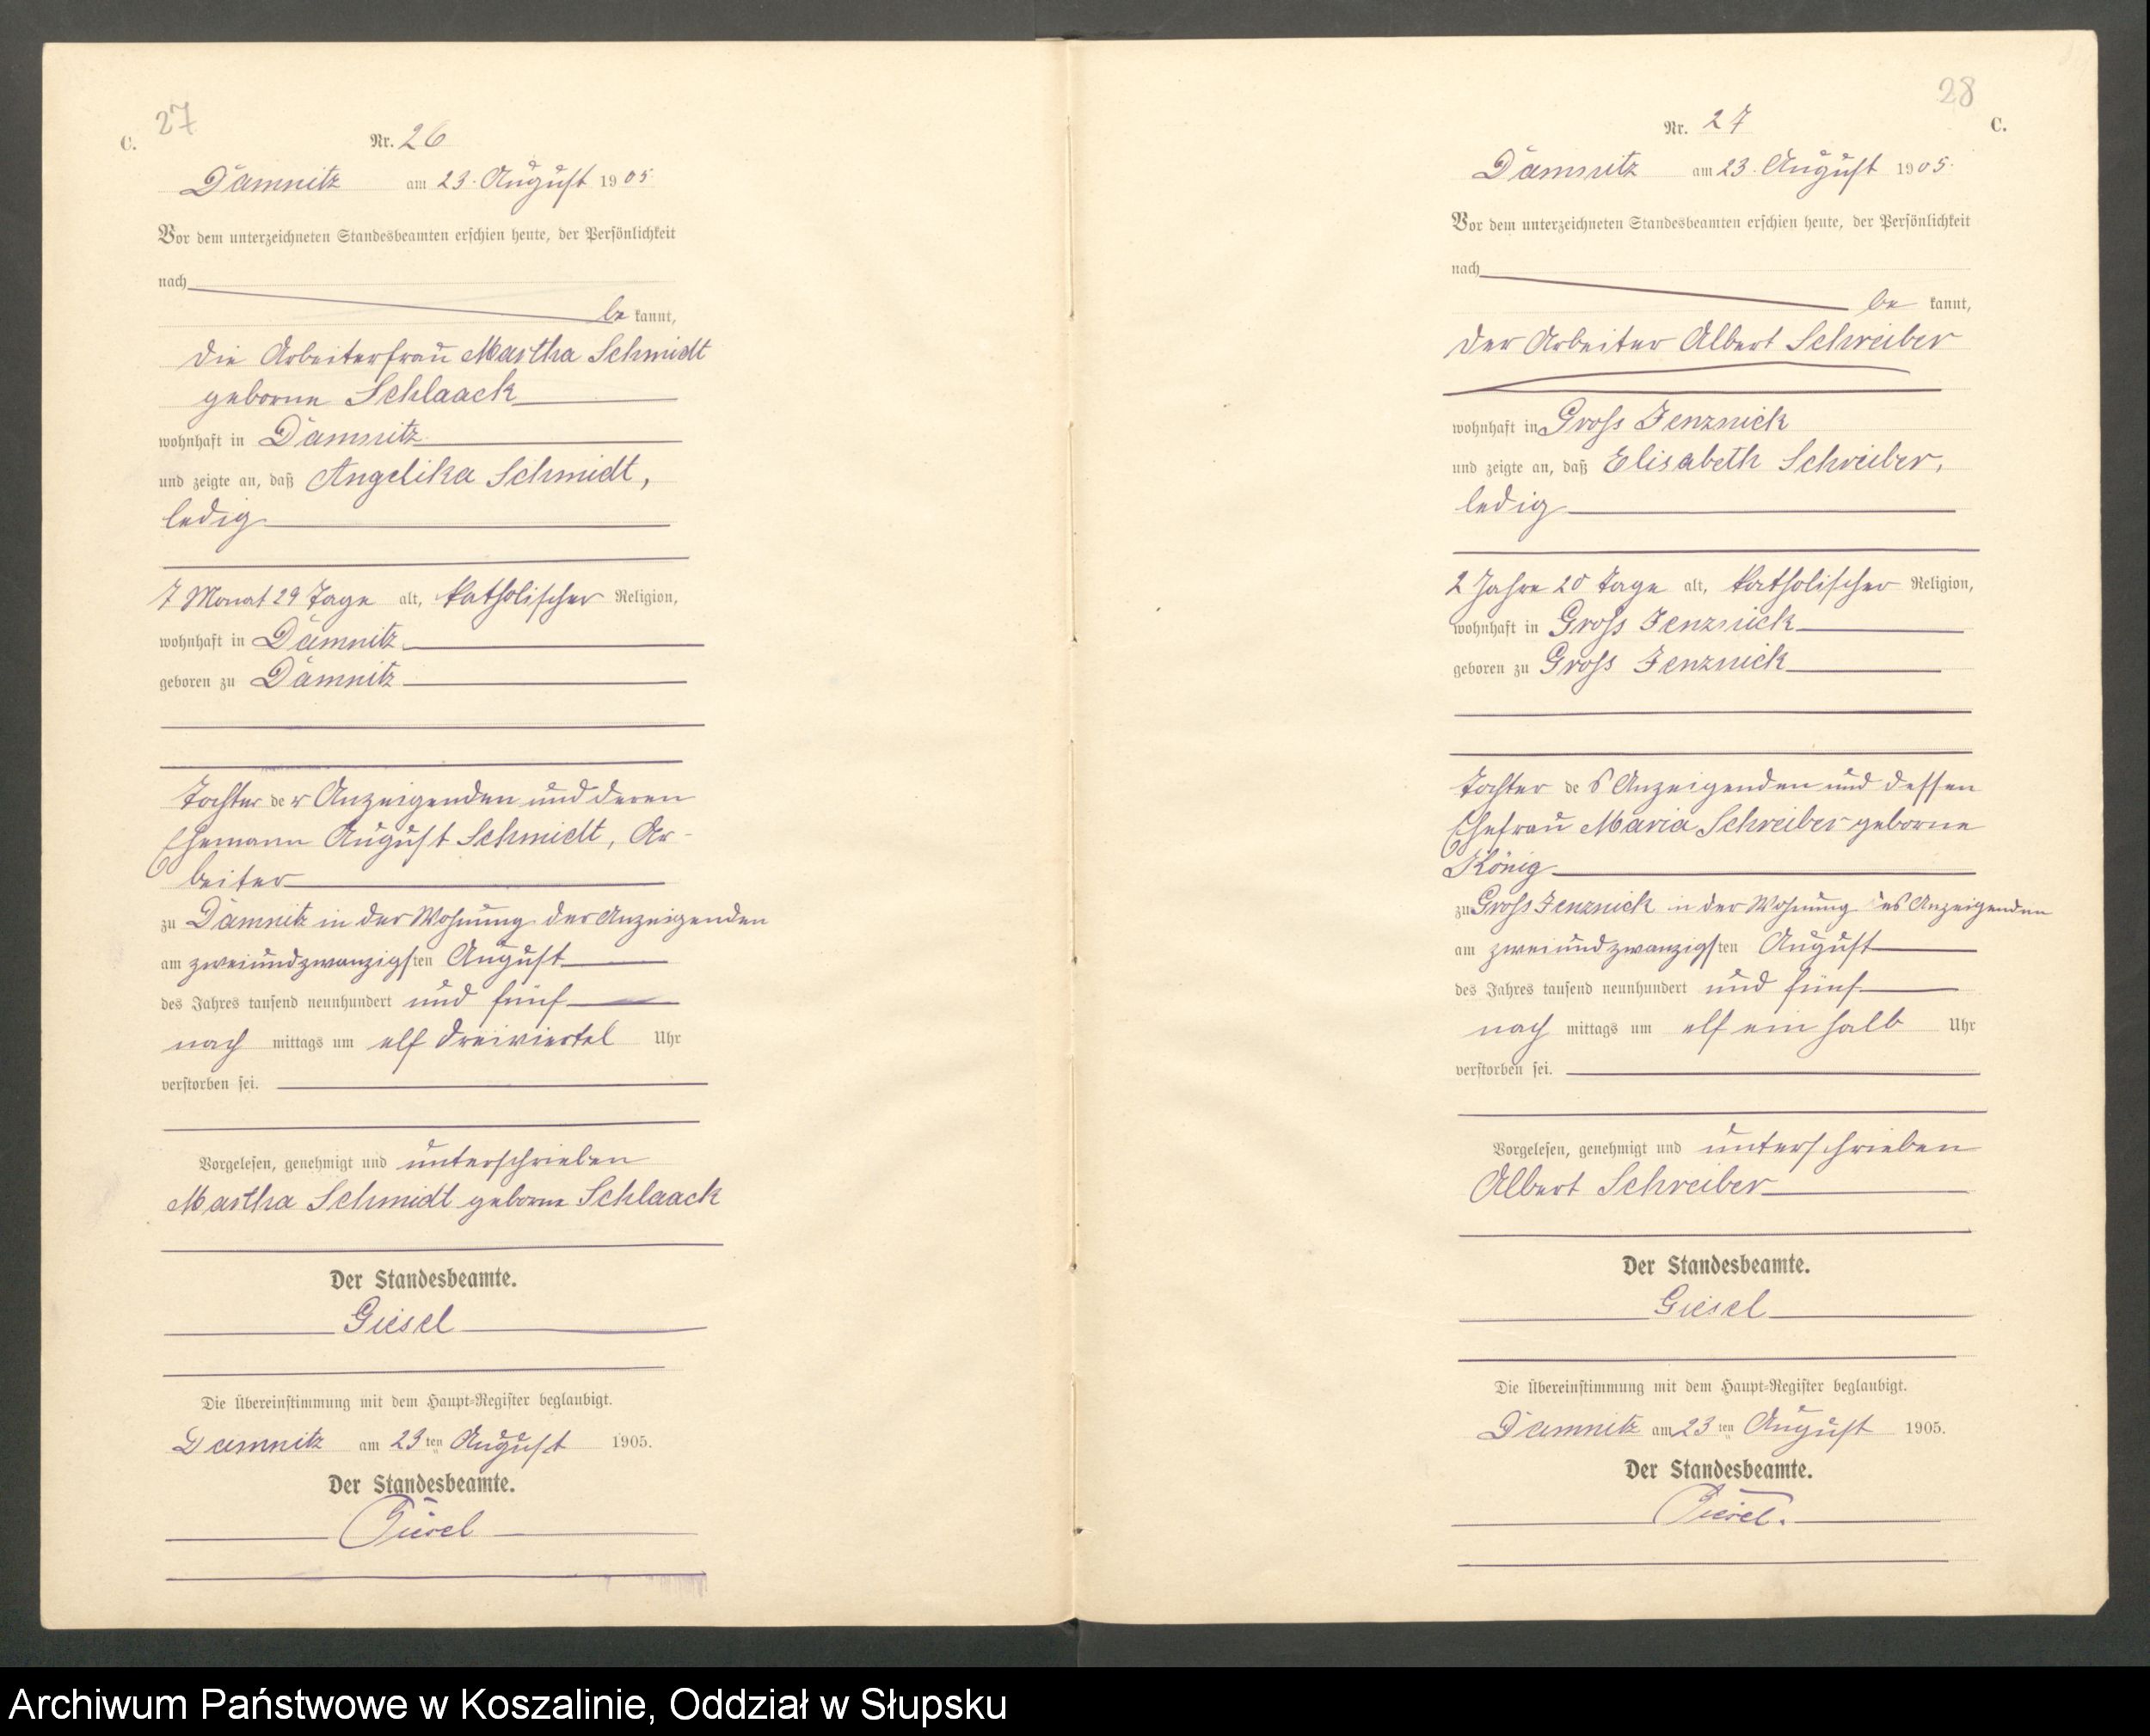 27
C.
Nr. 26
Damnitz am 23. August 1905.
Vor dem unterzeichneten Standesbeamten erschien heute, der Persönlichkeit
nach
be kannt,
die Arbeiterfrau Martha Schmidt
geborne Schlaack
wohnhaft in Damnitz
und zeigte an, daß Angelika Schmidt,
ledig
7 Monat 29 Tage alt, katholischer Religion,
wohnhaft in Damnitz
geboren zu Damnitz
Tochter der Anzeigenden und deren
Ehemann August Schmidt, Ar-
beiter
zu Damnitz in der Wohnung der Anzeigenden
am zweiundzwanzigsten August
des Jahres tausend neunhundert und fünf
nach mittags um elf dreiviertel Uhr
verstorben sei.
Vorgelesen, genehmigt und unterschrieben
Martha Schmidt geborne Schlaack
Der Standesbeamte.
Giesel
Die Übereinstimmung mit dem Haupt-Register beglaubigt.
Damnitz am 23ten August 1905.
Der Standesbeamte.
Giesel
28
Nr. 27
C.
Damnitz am 23. August 1905.
Vor dem unterzeichneten Standesbeamten erschien heute, der Persönlichkeit
nach
be kannt,
der Arbeiter Albert Schreiber
wohnhaft in Gross Jenznick
und zeigte an, daß Elisabeth Schreiber,
ledig
2 Jahre 20 Tage alt, katholischer Religion,
wohnhaft in Gross Jenznick
geboren zu Gross Jenznick
Tochter des Anzeigenden und dessen
Ehefrau Maria Schreiber geborne
König
zu Gross Jenznick in der Wohnung des Anzeigenden
am zweiundzwanzigsten August
des Jahres tausend neunhundert und fünf
nach mittags um elf ein halb Uhr
verstorben sei.
Vorgelesen, genehmigt und unterschrieben
Albert Schreiber
Der Standesbeamte.
Giesel
Die Übereinstimmung mit dem Haupt-Register beglaubigt.
Damnitz am 23ten August 1905.
Der Standesbeamte.
Giesel.
Archiwum Państwowe w Koszalinie, Oddział w Słupsku